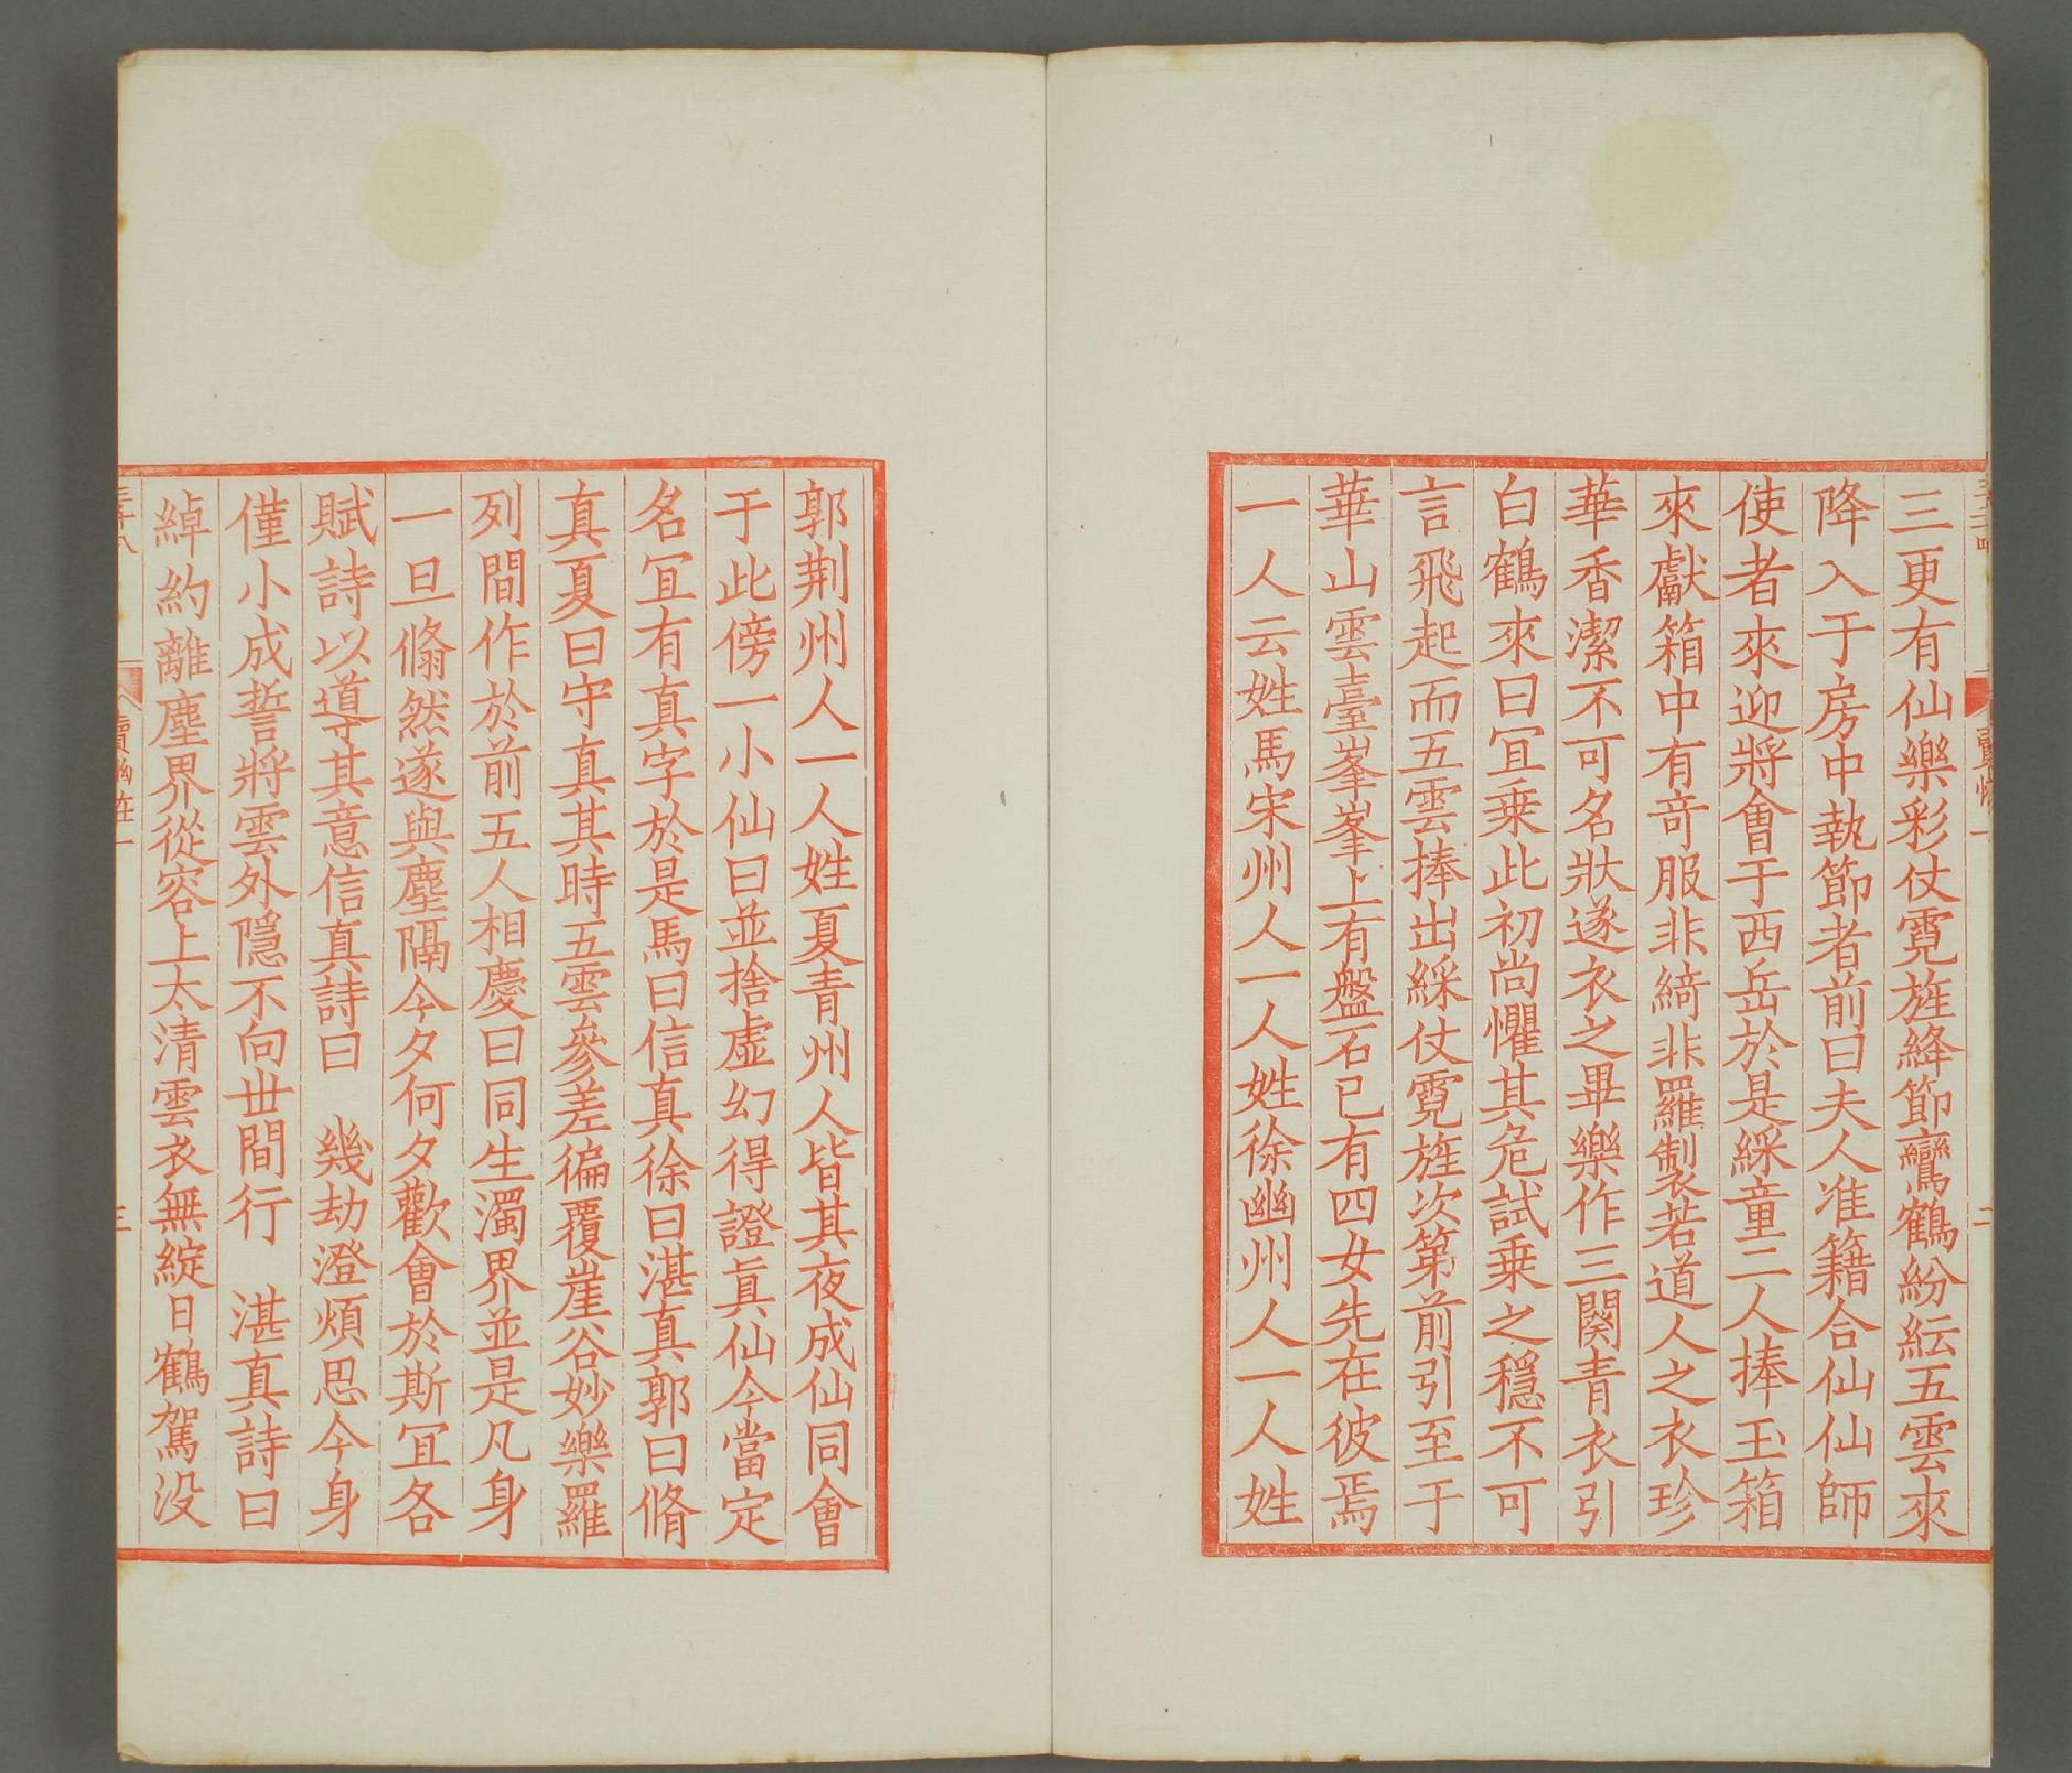 三更有仙樂彩仗霓旌絳節鸞鶴紛紜五雲來
降入于房中執節者前曰夫人准籍合仙仙師
使者來迎將會于西岳於是綵童二人捧玉箱
來獻箱中有竒服非綺非羅製若道人之衣珍
華香潔不可名狀遂衣之畢樂作三闋青衣引
白鶴來曰冝乗此初尚懼其危試乗之穩不可
言飛起而五雲捧出綵仗霓旌次第前引至于
華山雲臺峯峯上有盤石已有四女先在彼焉
一人云姓馬宋州人一人姓徐幽州人一人姓
郭荆州人一人姓夏青州人皆其夜成仙同會
于此傍一小仙曰並捨虚幻得證眞仙今當定
名冝有真字於是馬曰信真徐曰湛真郭曰脩
真夏曰守真其時五雲參差徧覆崖谷妙樂羅
列間作於前五人相慶曰同生濁界並是凡身
一旦翛然遂與塵隔今夕何夕歡會於斯冝各
賦詩以導其意信真詩曰　幾劫澄煩思今身
僅小成誓將雲外隱不向丗間行　湛真詩曰
綽約離塵界從容上太清雲衣無綻日鶴駕没
續幽怪一
三